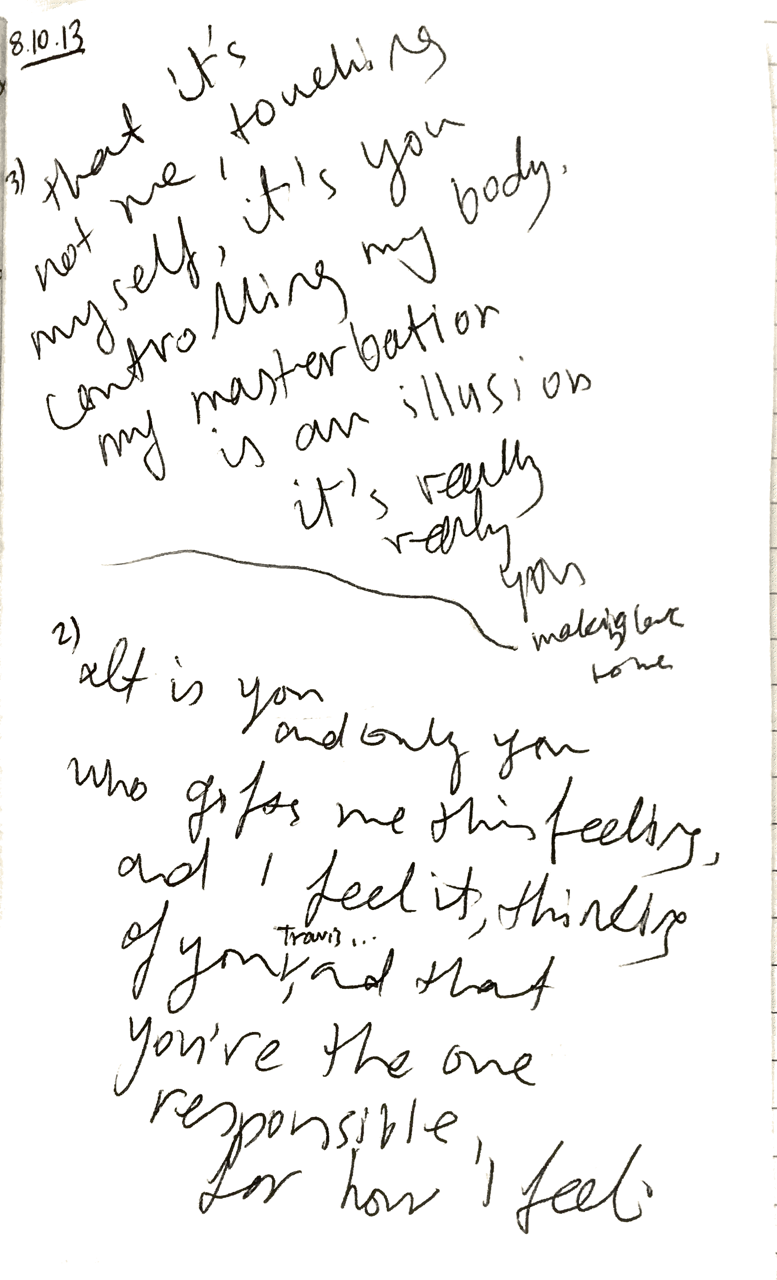 8.10.13
3) that it's
not me touching
myself, it's you
controlling my body.
my masterbation
is an illusion
it's really
really
you
making love
to me
2)
It is you
and only you
who gifts me this feeling,
and I feel it, thinking
Travis...
of you, and that
you're the one
responsible,
for how I feel.